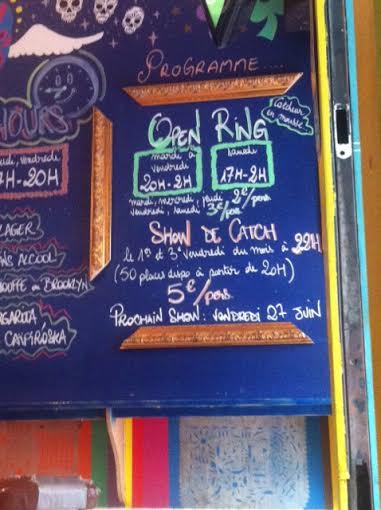 PROGRAMME....
HOURS
OPEN RING
Catcheur
en mousse
mardi à
vendredi
20H-2H
samedi
17H-2H
vendredi
17H-20H
mardi, mercredi, jeudi 2€/pers
vendredi, samedi 3€/per
SHOW DE CATCH
le 1er et 3e vendredi du mois à 22H
(50 places dispo à partir de 20H)
5€/pers.
PROCHAIN SHOW : VENDREDI 27 JUIN
LAGER
ALCOOL
BROOKLYN
CAÏPIROSKA